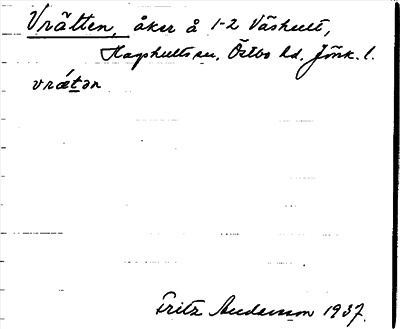 Vrätten, åker å 1-2 Våshult,
Hagshults sn, Östbo hd. Jönk. l.
vrǽtən
Fritz Andersson 1937.